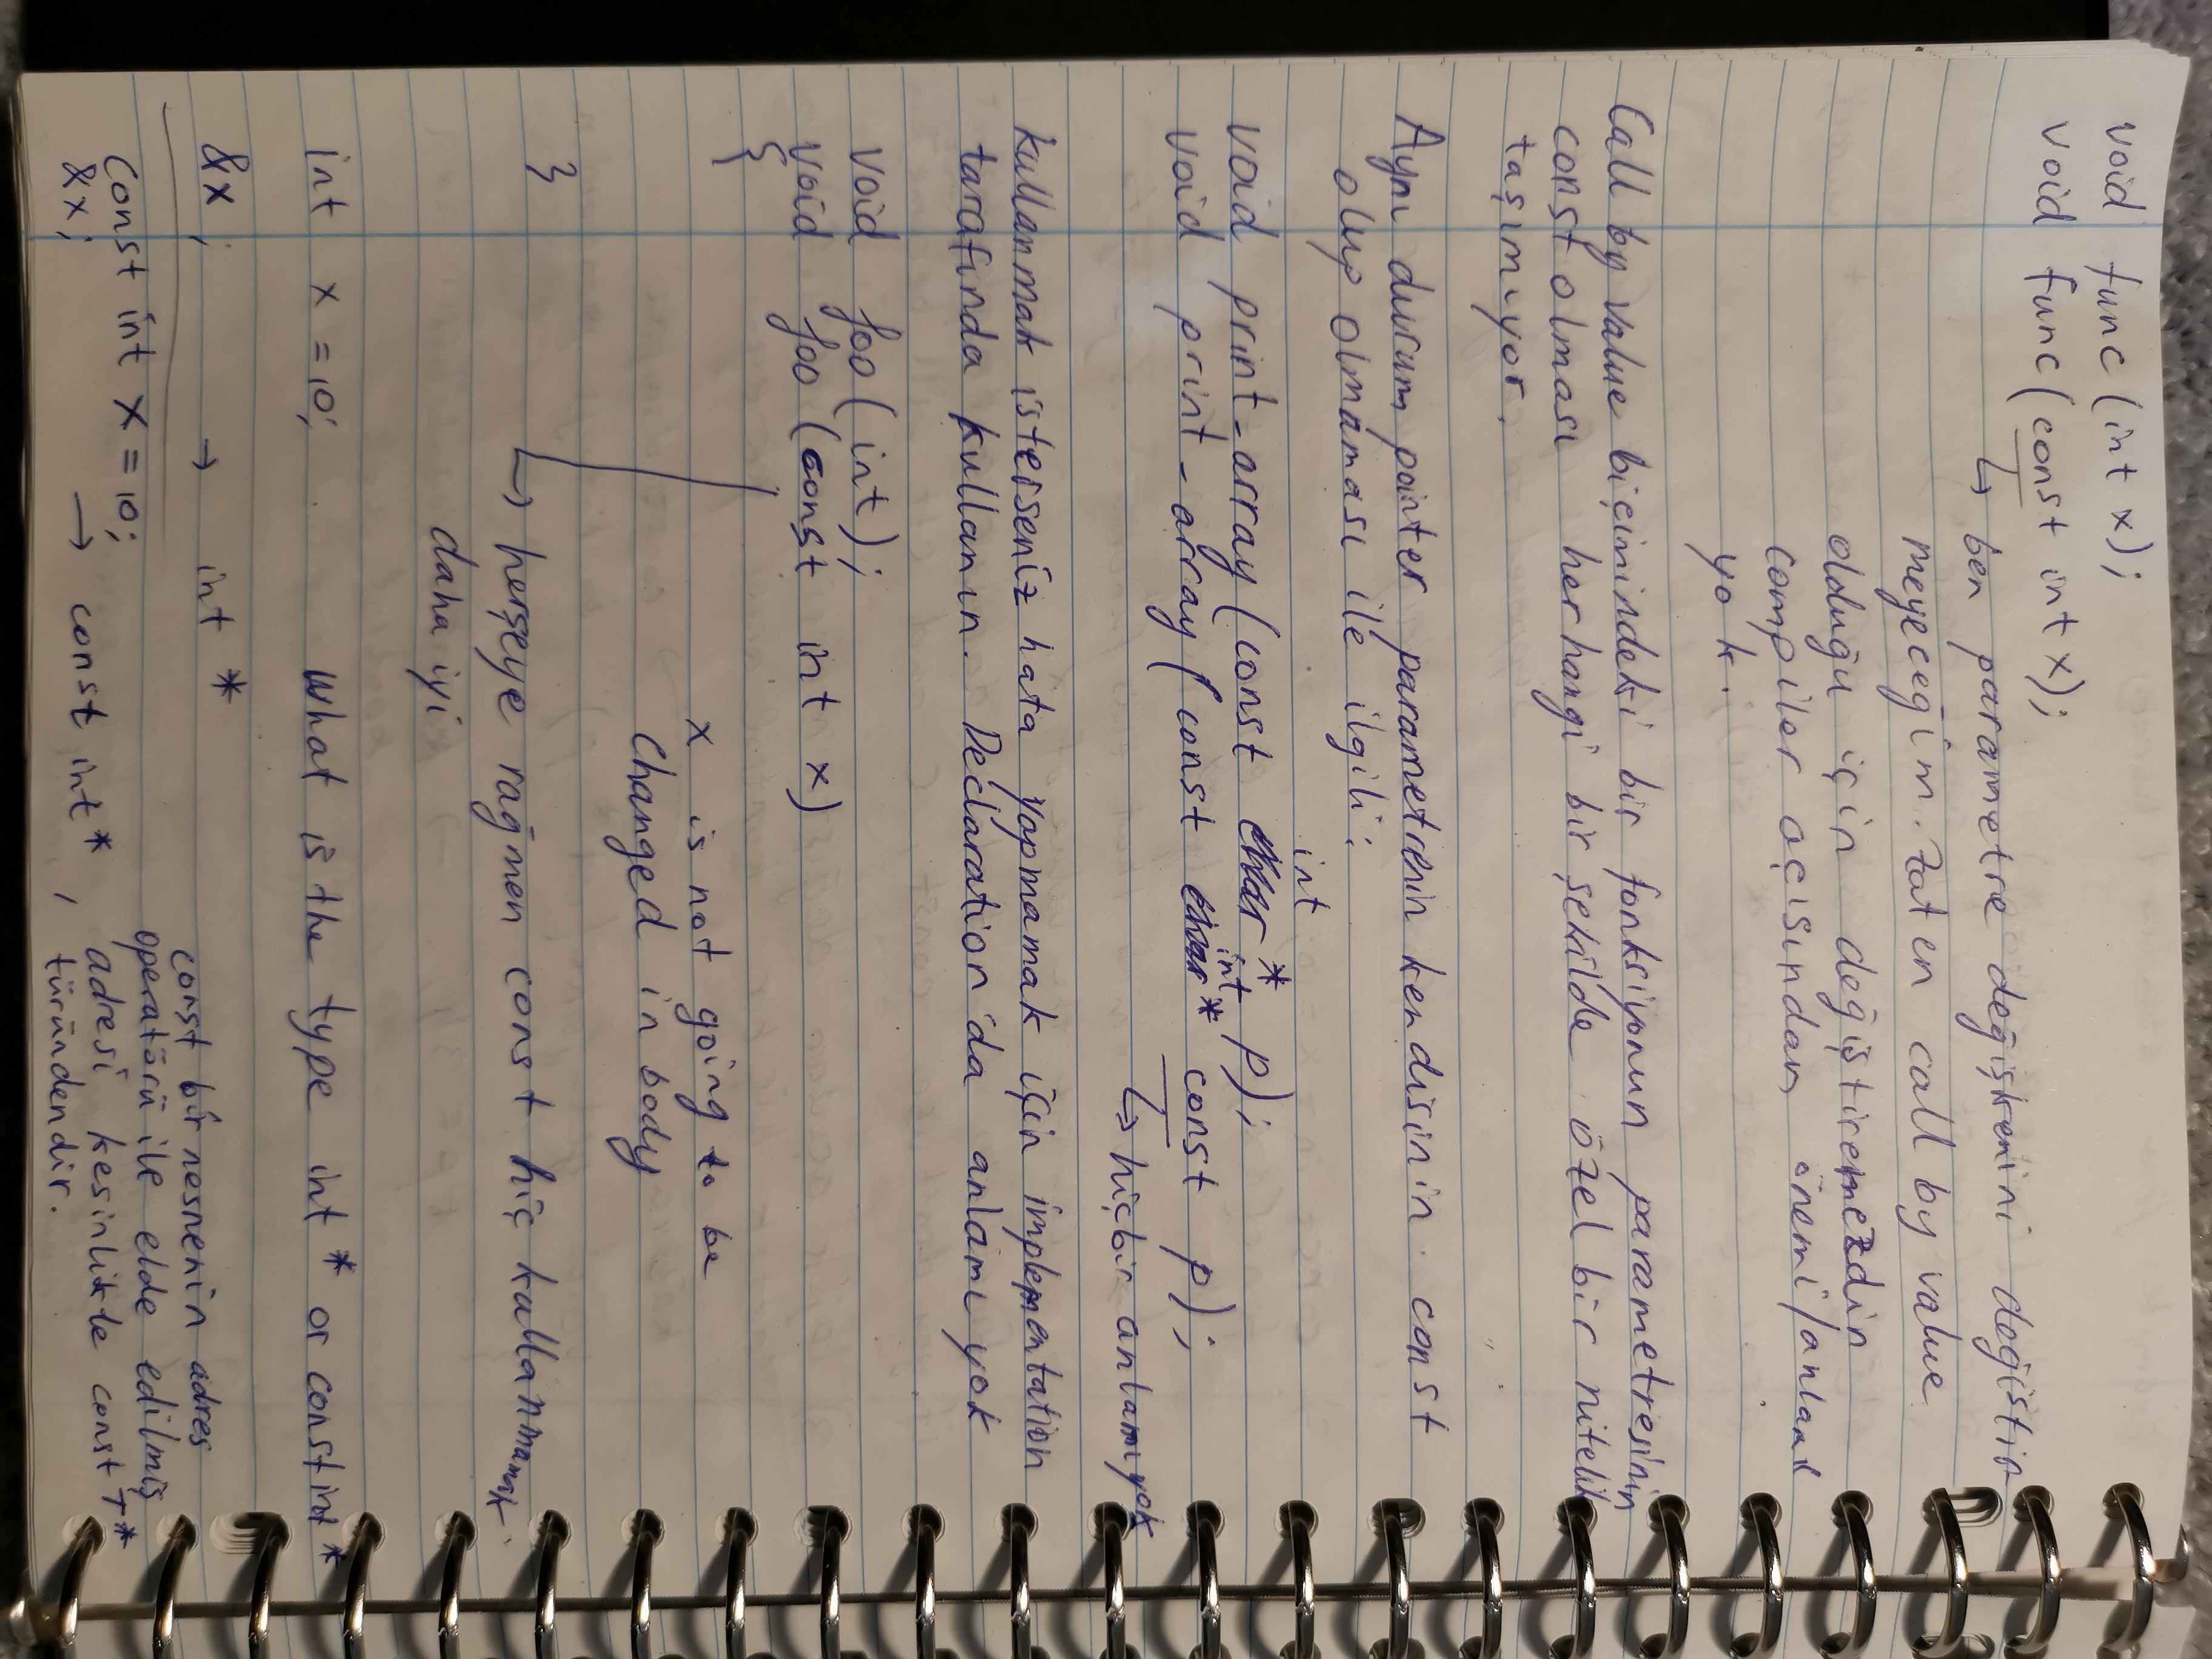 void func(int x);
void func(const int x);
↳ ben parametre değişkenini değiştir-
meyeceğim. Zaten call by value
olduğu için değiştiremezdin
compiler açısından önemi/anlamı
yok.
Call by value biçimindeki bir fonksiyonun parametresinin
const olması herhangi bir şekilde özel bir nitelik
taşımıyor.
Aynı durum pointer parametrenin kendisinin const
olup olmaması ile ilgili:
int
void print_array(const char * p);
int
void print_array(const char * const p);
↳ hiçbir anlamı yok
kullanmak isterseniz hata yapmamak için implementation
tarafında kullanın. Declaration'da anlamı yok
void foo(int);
void foo (const int x)
{
x is not going to be
changed in body
}
↳ herşeye rağmen const hiç kullanmamak
daha iyi
int x = 10; What is the type int * or const int *
&x; → int *
const int x = 10;
&x; → const int *,
const bir nesnenin adres
operatörü ile elde edilmiş
adresi kesinlikle const T*
türündendir.